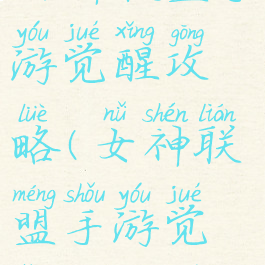 yóu jué xǐng gōng
游觉醒攻
lüè nǚ shén lián
略(女神联
méng shǒu yóu jué
盟手游觉